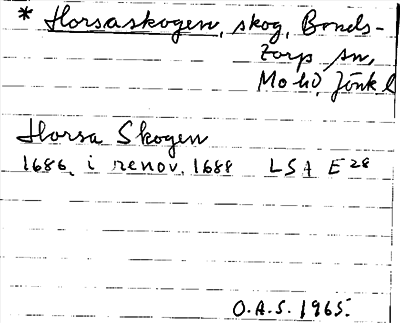 * Horsaskogen, skog, Bonds-
torp sn,
Mo hd, Jönk l
Horsa Skogen
1686, i renov. 1688 LSA E28
O.A.S. 1965.